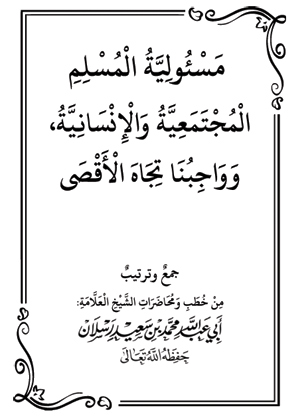 مَسْئُولِيَّةُ الْمُسْلِمِ
الْمُجْتَمَعِيَّةُ وَالْإِنْسَانِيَّةُ،
وَوَاجِبُنَا تِجَاهَ الْأَقْصَى
جمعٌ وترتيبٌ
مِنْ خُطَبِ وَمُحَاضَرَاتِ الشَّيْخِ الْعَلَّامَةِ:
أَبِي عَبْدِ اللَّهِ مُحَمَّدِ بْنِ سَعِيدٍ رَسْلَان
حَفِظَهُ اللَّهُ تَعَالَى